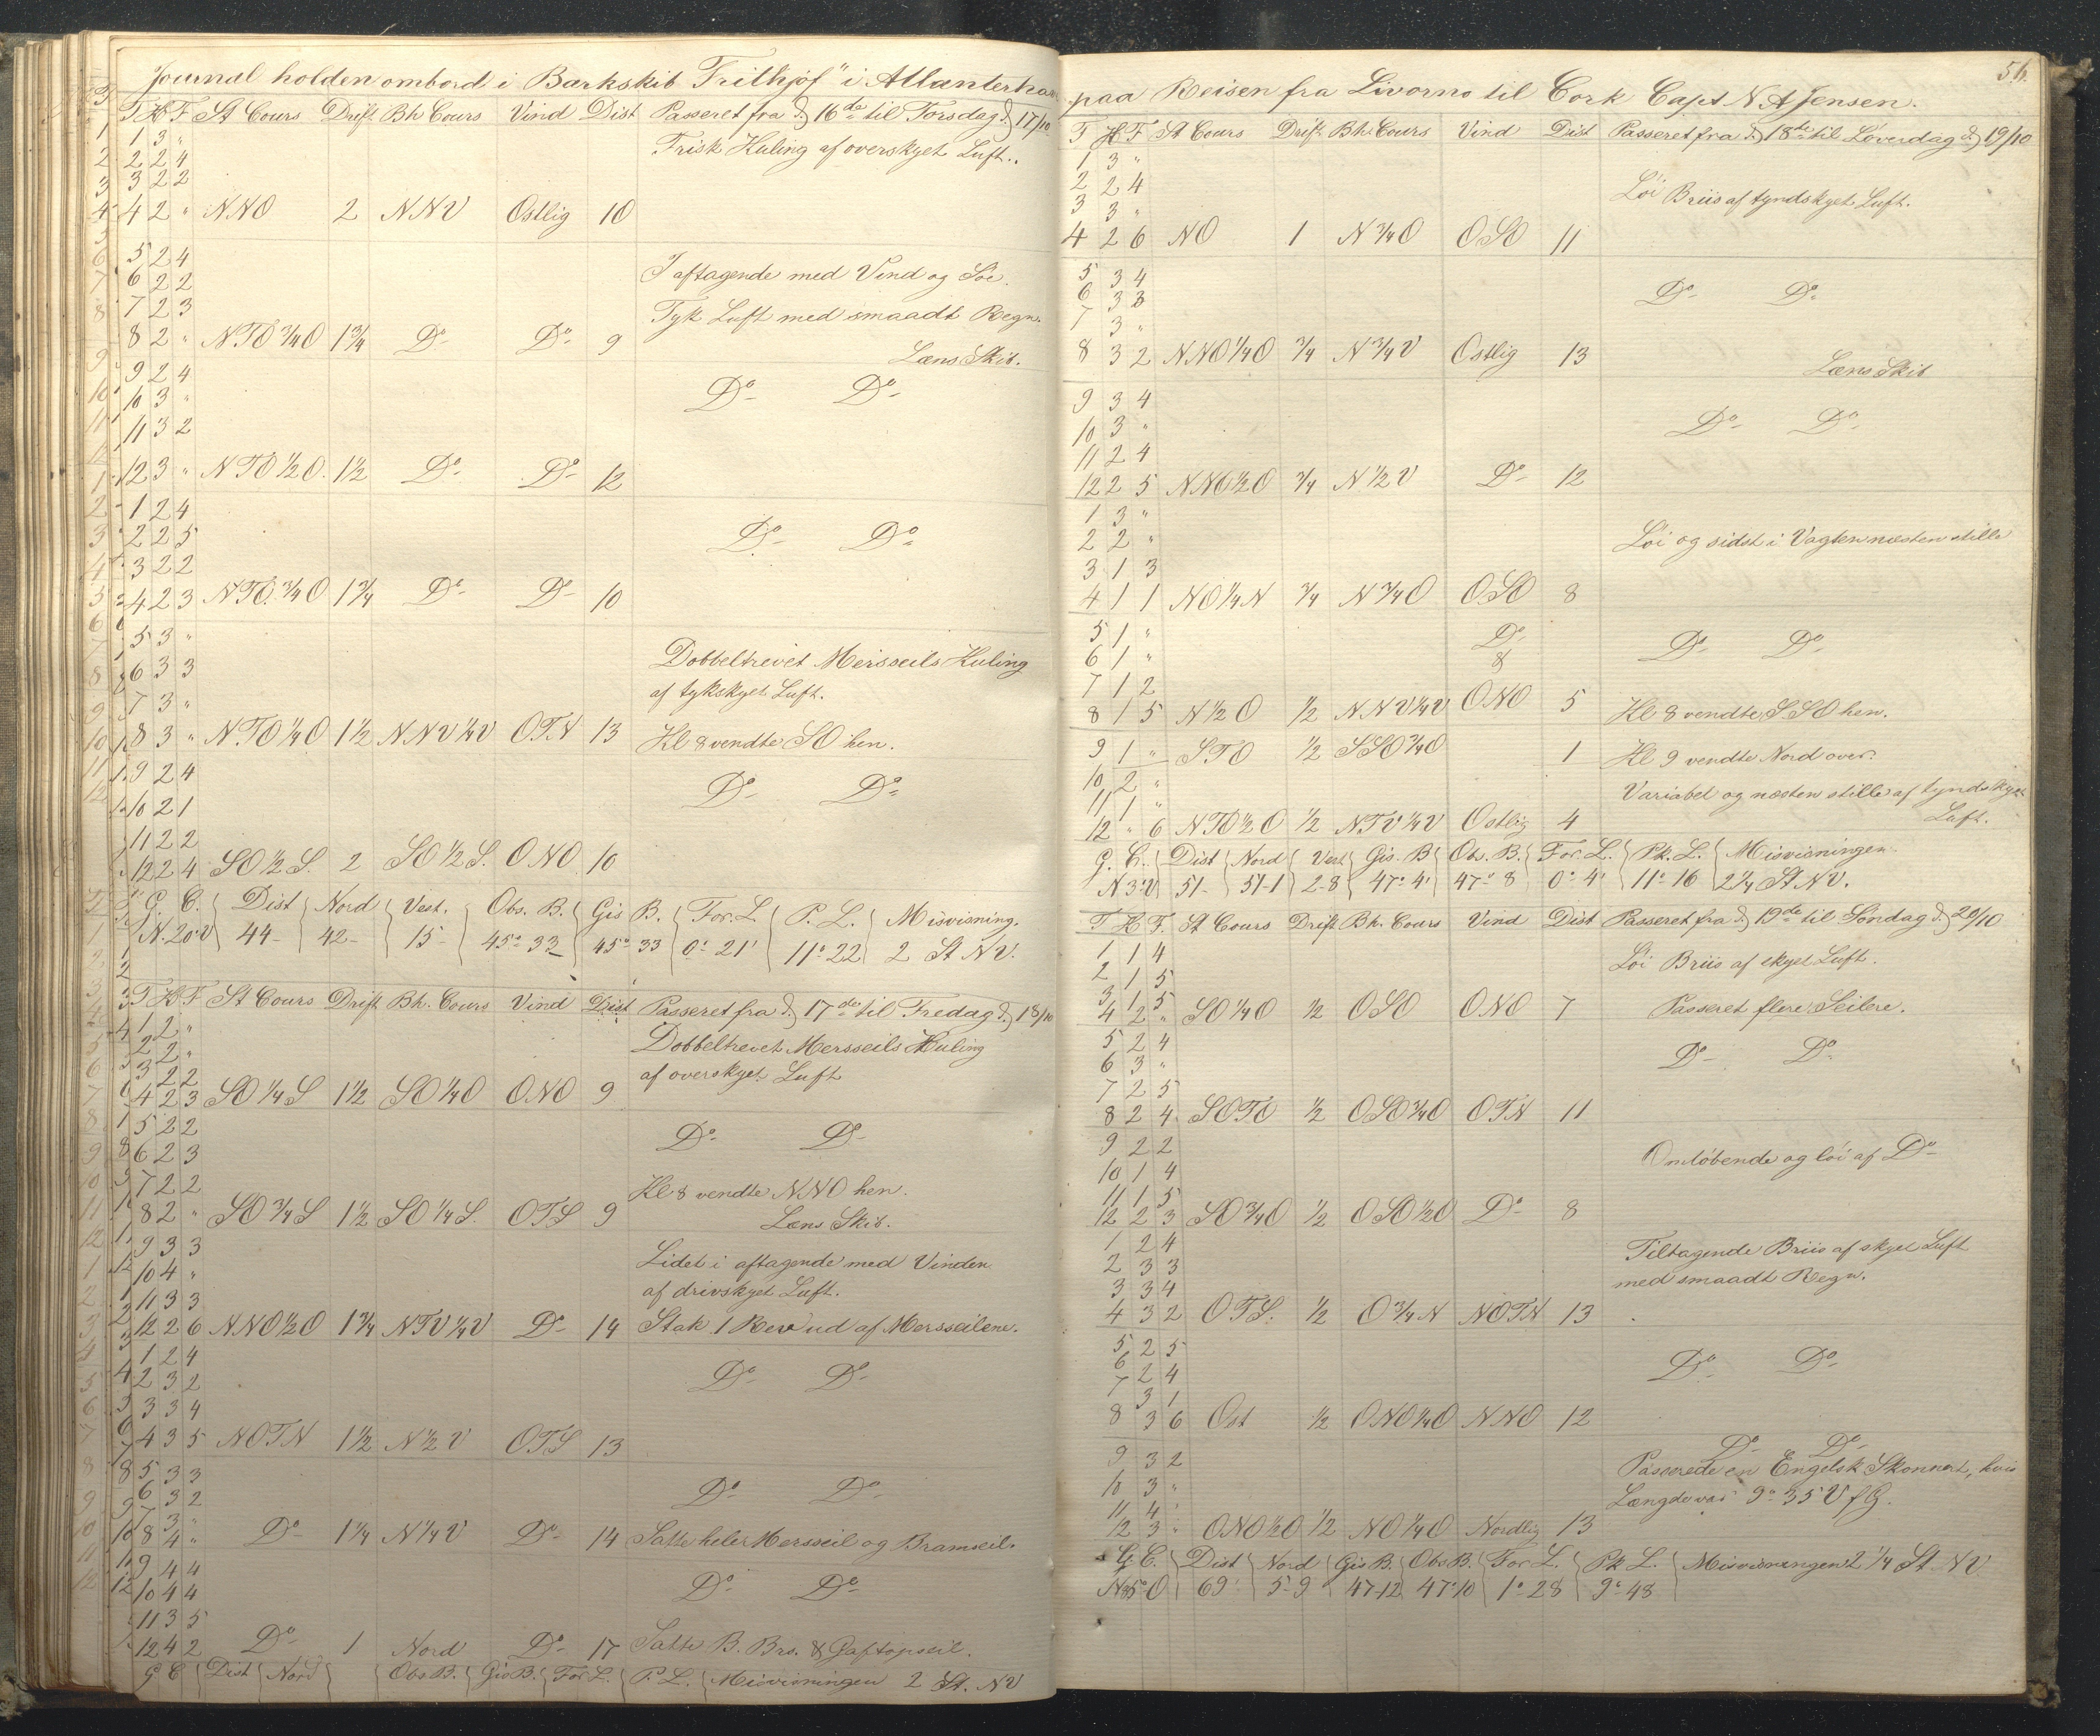 Journal holden ombord i Barkskib "Frithjof" i Atlanterhav
T H F St Cours Drift Bh Cours Vind Dist Passeret fra d) 16de til Torsdag d) 17/10
1 3 "
Frisk Kuling af overskyet Luft.
2 2 4
3 2 2
4 2 " NNO 2 NNV Ostlig 10
5 2 4
I aftagende med Vind og Söe.
6 2 2
7 2 3
Tyk Luft med smaadt Regn.
8 2 " NTO 3/4 O 1 3/4 Do Do 9
Læns Skib.
9 2 4
Do Do
10 3 "
11 3 2
12 3 " NTO 1/2 O. 1 1/2 Do Do 12
1 2 4
2 2 5
Do Do
3 2 2
4 2 3 NTO. 3/4 O 1 3/4 Do Do 10
5 3 "
Dobbeltrevet Mersseils Kuling
6 3 3
af tykskyet Luft.
7 3 "
8 3 " NTO 1/4 O 1 1/2 NNV 1/4 V OTN 13 Kl 8 vendte SO hen.
9 2 4
Do Do
10 2 1
11 2 2
12 2 4 SO 1/2 S. 2 SO 1/2 S. ONO 10
G. C. Dist Nord Vest. Obs. B. Gis B. For. L. P. L. Misvisning.
N. 20° V 44 42 15 45° 33 45° 33 0° 21' 11° 22 2 St NV.
T H F St Cours Drift Bh. Cours Vind Dist Passeret fra d) 17de til Fredag d) 18/10
1 2 "
Dobbeltrevet Mersseils Kuling
2 2 "
3 2 2
af overskyet Luft
4 2 3 SO 1/4 S 1 1/2 SO 1/4 O ONO 9
5 2 2
Do Do
6 2 3
7 2 2
Kl 8 vendte NNO hen.
8 2 " SO 3/4 S 1 1/2 SO 1/4 S. OTS 9
Læns Skib.
9 3 3
Lidet i aftagende med Vinden
10 4 "
af drivskyet Luft.
11 3 3
12 2 6 NNO 1/2 O 1 3/4 NTV 1/4 V Do 14 Stak 1 Rev ud af Mersseilene.
1 2 4
Do Do
2 3 2
3 3 4
4 3 5 NOTN 1 1/2 N 1/2 V OTS 13
5 3 3
Do Do
6 3 2
7 3 "
8 4 " Do 1 1/4 N 1/4 V Do 14 Satte heler Mersseil og Bramseil.
9 4 4
Do Do
10 4 4
11 3 5
12 4 2 Do 1 Nord Do 17 Satte B. Brs. & Gaftopseil.
G C Dist Nord Obs B. Gis B. For. L. P. L. Misvisningen 2 St. NV
56.
paa Reisen fra Livorno til Cork Capt N. A Jensen.
T H F St Cours Drift Bh. Cours Vind Dist Passeret fra d) 18de til Löverdag d) 19/10
1 3 "
2 2 4
Löi Briis af tyndskyet Luft.
3 3 "
4 2 6 NO 1 N 3/4 O OSO 11
5 3 4
Do Do
6 3 3
7 3 "
8 3 2 NNO 1/4 O 3/4 N 3/4 V Ostlig 13
Læns Skib
9 3 4
10 3 "
Do Do
11 2 4
12 2 5 NNO 1/2 O 3/4 N 1/2 V Do 12
1 3 "
2 2 "
Löi og sidst i Vagten næsten stille
3 1 3
4 1 1 NO 1/4 N 3/4 N 3/4 O OSO 8
5 1 "
Do
Do Do
6 1 "
&
7 1 2
8 1 5 N 1/2 O 1/2 NNV 1/4 V ONO 5 Kl 8 vendte SSO hen.
9 1 " STO 1/2 SSO 3/4 O 1 Kl 9 vendte Nord over.
10 2 "
Variabel og næsten stille af tyndskyet
11 1 "
Luft.
12 " 6 NTO 1/2 O 1/2 NTV 1/4 V Ostlig 4
G. C. Dist Nord Vest Gis. B Obs. B. For. L. Pk. L. Misvisningen
N 3° V 51 51-1 2-8 47° 4' 47° 8 0° 4' 11° 16 2 1/4 St NV.
T H F. St Cours Drift Bh. Cours Vind Dist Passeret fra d) 19de til Söndag d) 20/10
1 1 4
Löi Briis af skyet Luft.
2 1 5
3 1 5
4 2 " SO 1/4 O 1/2 OSO ONO 7 Passeret flere Seilere.
5 2 4
Do Do
6 3 "
7 2 5
8 2 4 SOTO 1/2 OSO 3/4 O OTN 11
9 2 2
Omlöbende og löi af Do
10 1 4
11 1 5
12 2 3 SO 3/4 O 1/2 OSO 1/2 O Do 8
1 2 4
Tiltagende Briis af skyet Luft
2 3 3
med smaadt Regn.
3 3 4
4 3 2 OTS. 1/2 O 3/4 N NOTN 13
5 2 5
Do Do
6 2 4
7 3 1
8 3 6 Ost 1/2 ONO 1/4 O NNO 12
Do Do
9 3 2
Passerede en Engelsk Skonnert, hvis
10 3 "
Længde var 9° 35 V f G.
11 4 "
12 3 " ONO 1/2 O 1/2 NO 1/4 O Nordlig 13
G C. Dist Nord Gis B. Obs B. For. L. Pk L. Misvisningen 2 1/4 St NV
N 85° O 69 5-9 47-12 47° 10 1° 28 9° 48